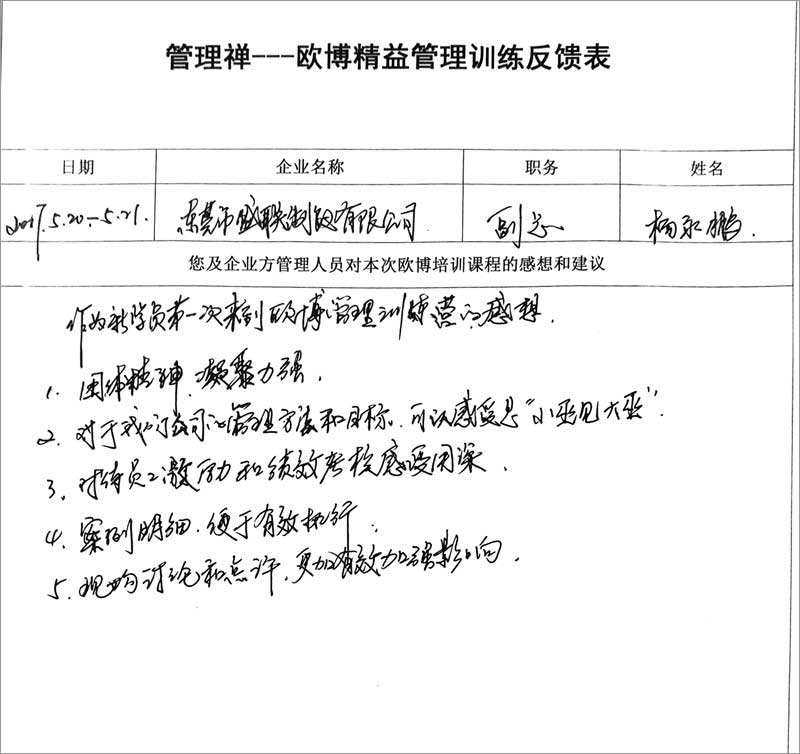 管理禅---欧博精益管理训练反馈表
日期 企业名称 职务 姓名
2017.5.20-5.21. 东莞市盛联制造有限公司 副总 杨永鹏
您及企业方管理人员对本次欧博培训课程的感想和建议
作为新学员第一次来到欧博管理训练营的感想.
1. 团体精神,凝聚力强.
2. 对于我们公司的管理方法和目标,可以感受是"小巫见大巫".
3. 对待员工激励和绩效考核感受困深.
4. 案例明细,便于有效执行.
5. 现场讨论和点评,更加有效加强影响.